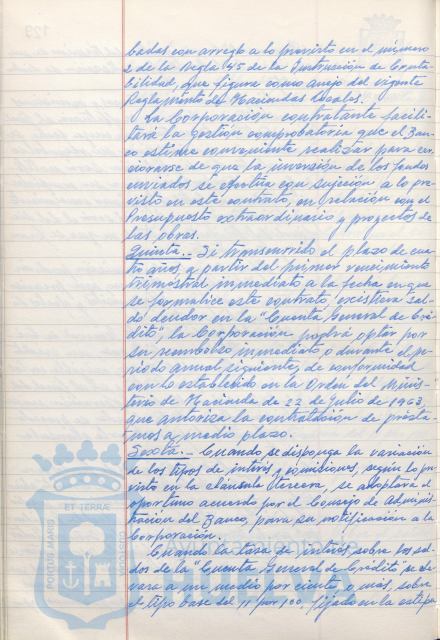 badas con arreglo a lo previsto en el número
2 de la Regla 45 de la Instrucción de Conta
bilidad, que figura como anejo del vigente
Reglamento de Haciendas Locales.
La Corporación contratante facili-
tará la gestión comprobatoria que el Ban-
co estime conveniente realizar para cer-
ciorarse de que la inversión de los fondos
enviados se efectúa con sujeción a lo pre-
visto en este contrato, en relación con el
Presupuesto extraordinario y proyectos de
las obras.
Quinta.- Si transcurrido el plazo de cua
tro años, a partir del primer vencimiento
trimestral inmediato a la fecha en que
se formalice este contrato, existiera sal-
do deudor en la "Cuenta General de Cré-
dito", la Corporación podrá optar por
su reembolso inmediato o durante el pe-
riodo anual siguiente, de conformidad
con lo establecido en la Orden del Minis-
terio de Hacienda de 22 de Julio de 1963,
que autoriza la contratación de présta-
mos a medio plazo.
Sexta.- Cuando se disponga la variación
de los tipos de interés y comisiones, según lo pre
visto en la cláusula tercera, se adoptará el
oportuno acuerdo por el Consejo de Adminis-
tración del Banco, para su notificación a la
Corporación.
Cuando la tasa de interés sobre los sal-
dos de la "Cuenta General de Crédito", se ele
vara a un medio por ciento, o más, sobre
el tipo base del 11 por 100, fijado en la estipu
PORTUS MARIS
ET TERRÆ
CUSTODIA
Ayuntamiento de
HUELVA